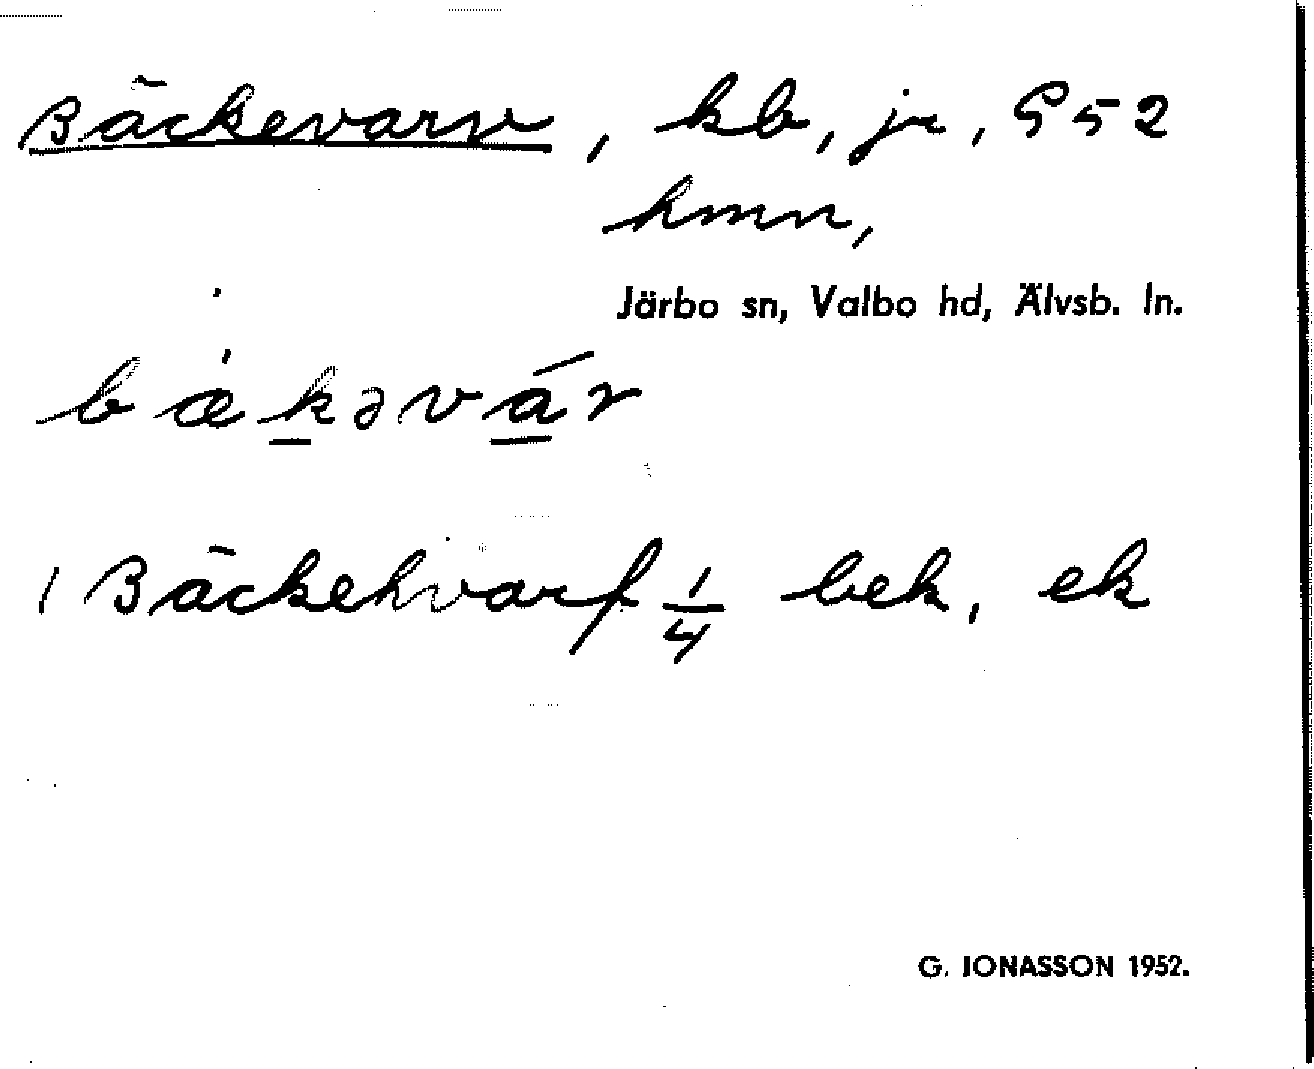 Bäckevarv, kb, jr, 952
hmn,
Järbo sn, Valbo hd, Älvsb. ln.
bækəvár
1 Bäckehvarf 1/4 bek, ek
G. JONASSON 1952.